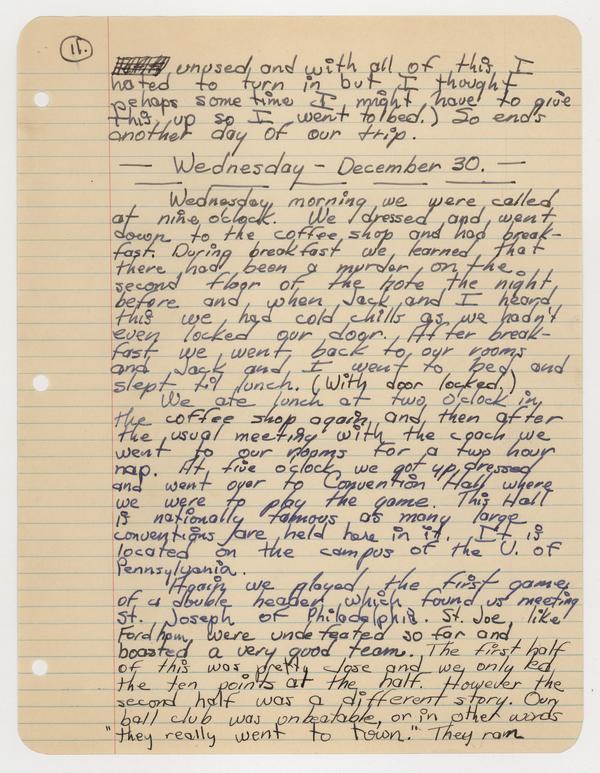 11.
unused and with all of this I
hated to turn in but I thought
pehaps some time I might have to give
this up so I went to bed.) So ends
another day of our trip.
— Wednesday - December 30. —
Wednesday morning we were called
at nine oclock. We dressed and went
down to the coffee shop and had break-
fast. During breakfast we learned that
there had been a murder on the
second floor of the hote the night
before and when Jack and I heard
this we had cold chills as we hadn't
even locked our door. After break-
fast we went back to our rooms
and Jack and I went to bed and
slept til lunch. (With door locked.)
We ate lunch at two o'clock in
the coffee shop again and then after
the usual meeting with the coach we
went to our rooms for a two hour
nap. At five oclock we got up, dressed
and went over to Convention Hall where
we were to play the game. This Hall
is nationally famous as many large
conventions are held here in it. It is
located on the campus of the U. of
Pennsylvania.
Again we played the first game
of a double header which found us meeting
St. Joseph of Philadelphia. St. Joe, like
Fordham, were undefeated so far and
boasted a very good team. The first half
of this was pretty close and we only led
the ten points at the half. However the
second half was a different story. Our
ball club was unbeatable, or in other words
"they really went to town." They ran